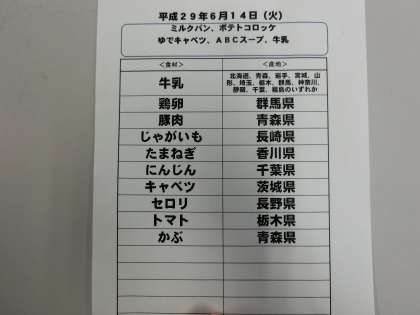 平成29年6月14日(火)
ミルクパン、ポテトコロッケ
ゆでキャベツ、ABCスープ、牛乳
<食材> <産地>
牛乳 北海道、青森、岩手、宮城、山
形、埼玉、栃木、群馬、神奈川、
静岡、千葉、福島のいずれか
鶏卵 群馬県
豚肉 青森県
じゃがいも 長崎県
たまねぎ 香川県
にんじん 千葉県
キャベツ 茨城県
セロリ 長野県
トマト 栃木県
かぶ 青森県